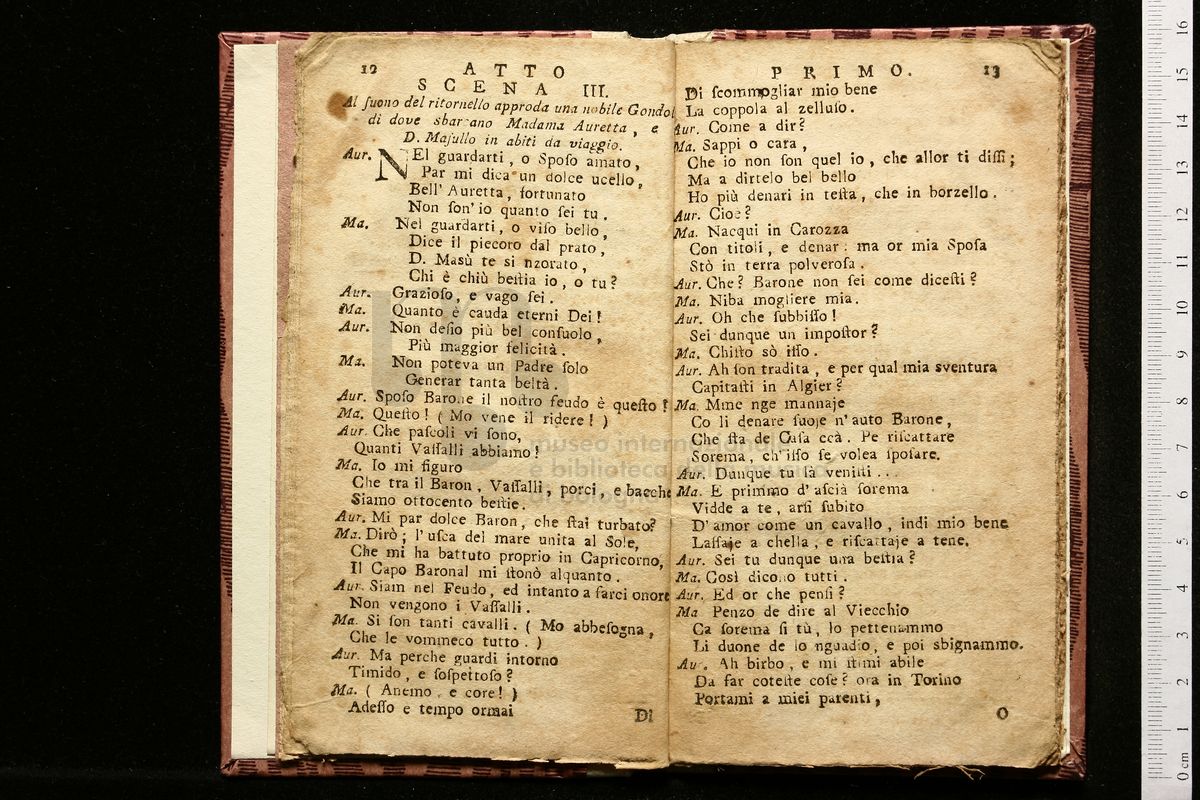 12 ATTO
SCENA III.
Al ſuono del ritornello approda una nobile Gondol
di dove sbarcano Madama Auretta, e
D. Majullo in abiti da viaggio.
Aur. NEl guardarti, o Spoſo amato,
Par mi dica un dolce ucello,
Bell' Auretta, fortunato
Non ſon' io quanto ſei tu.
Ma. Nel guardarti, o viſo bello,
Dice il piecoro dal prato,
D. Masù te si nzorato,
Chi è chiù beſtia io, o tu?
Aur. Grazioſo, e vago ſei.
Ma. Quanto è cauda eterni Dei!
Aur. Non deſio più bel conſuolo,
Più maggior felicità.
Ma. Non poteva un Padre ſolo
Generar tanta beltà.
Aur. Spoſo Barone il noſtro feudo è queſto?
Ma. Queſto! (Mo vene il ridere!)
Aur. Che paſcoli vi ſono,
Quanti Vaſſalli abbiamo!
Ma. Io mi figuro
Che tra il Baron, Vaſſalli, porci, e bacche
Siamo ottocento beſtie.
Aur. Mi par dolce Baron, che ſtai turbato?
Ma. Dirò; l'uſca del mare unita al Sole,
Che mi ha battuto proprio in Capricorno,
Il Capo Baronal mi ſtonò alquanto.
Aur. Siam nel Feudo, ed intanto a farci onore
Non vengono i Vaſſalli.
Ma. Si ſon tanti cavalli. (Mo abbeſogna,
Che le vommeco tutto.)
Aur. Ma perche guardi intorno
Timido, e ſoſpettoſo?
Ma. (Anemo, e core!)
Adeſſo e tempo ormai
Di
PRIMO. 13
Di ſcommogliar mio bene
La coppola al zelluſo.
Aur. Come a dir?
Ma. Sappi o cara,
Che io non ſon quel io, che allor ti diſſi;
Ma a dirtelo bel bello
Ho più denari in teſta, che in borzello.
Aur. Cioè?
Ma. Nacqui in Carozza
Con titoli, e denar: ma or mia Spoſa
Stò in terra polveroſa.
Aur. Che? Barone non ſei come diceſti?
Ma. Niba mogliere mia.
Aur. Oh che ſubbiſſo!
Sei dunque un impoſtor?
Ma. Chiſto sò iſſo.
Aur. Ah ſon tradita, e per qual mia sventura
Capitaſti in Algier?
Ma. Mme nge mannaje
Co li denare ſuoje n'auto Barone,
Che ſta de Caſa ccà. Pe riſcattare
Sorema, ch'iſſo ſe volea ſpoſare.
Aur. Dunque tu là veniſti...
Ma. E primmo d'aſcià ſorema
Vidde a te, arſi ſubito
D'amor come un cavallo, indi mio bene
Laſſaje a chella, e riſcattaje a tene.
Aur. Sei tu dunque una beſtia?
Ma. Così dicono tutti.
Aur. Ed or che penſi?
Ma Penzo de dire al Viecchio
Ca ſorema ſi tù, lo pettenammo
Li duone de lo nguadio, e poi sbignammo.
Aur. Ah birbo, e mi ſtimi abile
Da far coteſte coſe? ora in Torino
Portami a miei parenti,
O
museo internazionale
e biblioteca della musica
di bologna
0 cm 1 2 3 4 5 6 7 8 9 10 11 12 13 14 15 16